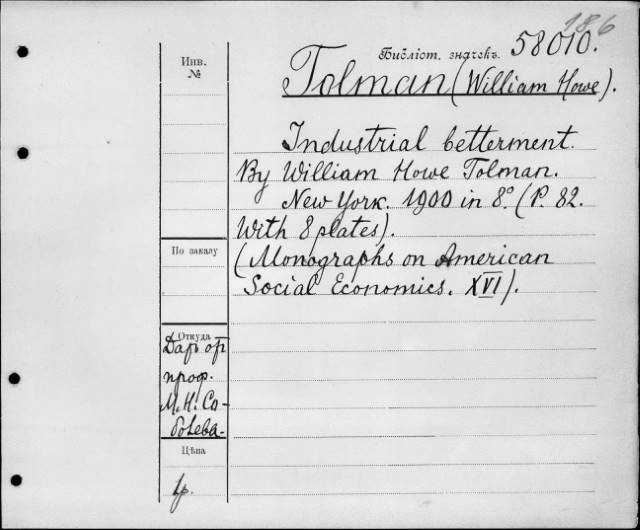 186
Библіот. значекъ. 58010.
Инв.
№
Tolman (William Howe).
Industrial betterment.
By William Howe Tolman.
New York. 1900 in 8.° (P. 82.
With 8 plates).
(Monographs on American
Social Economics. XVI).
По заказу
Откуда
Даръ от
проф.
М. Н. Со-
болева.
Цѣна
1р.